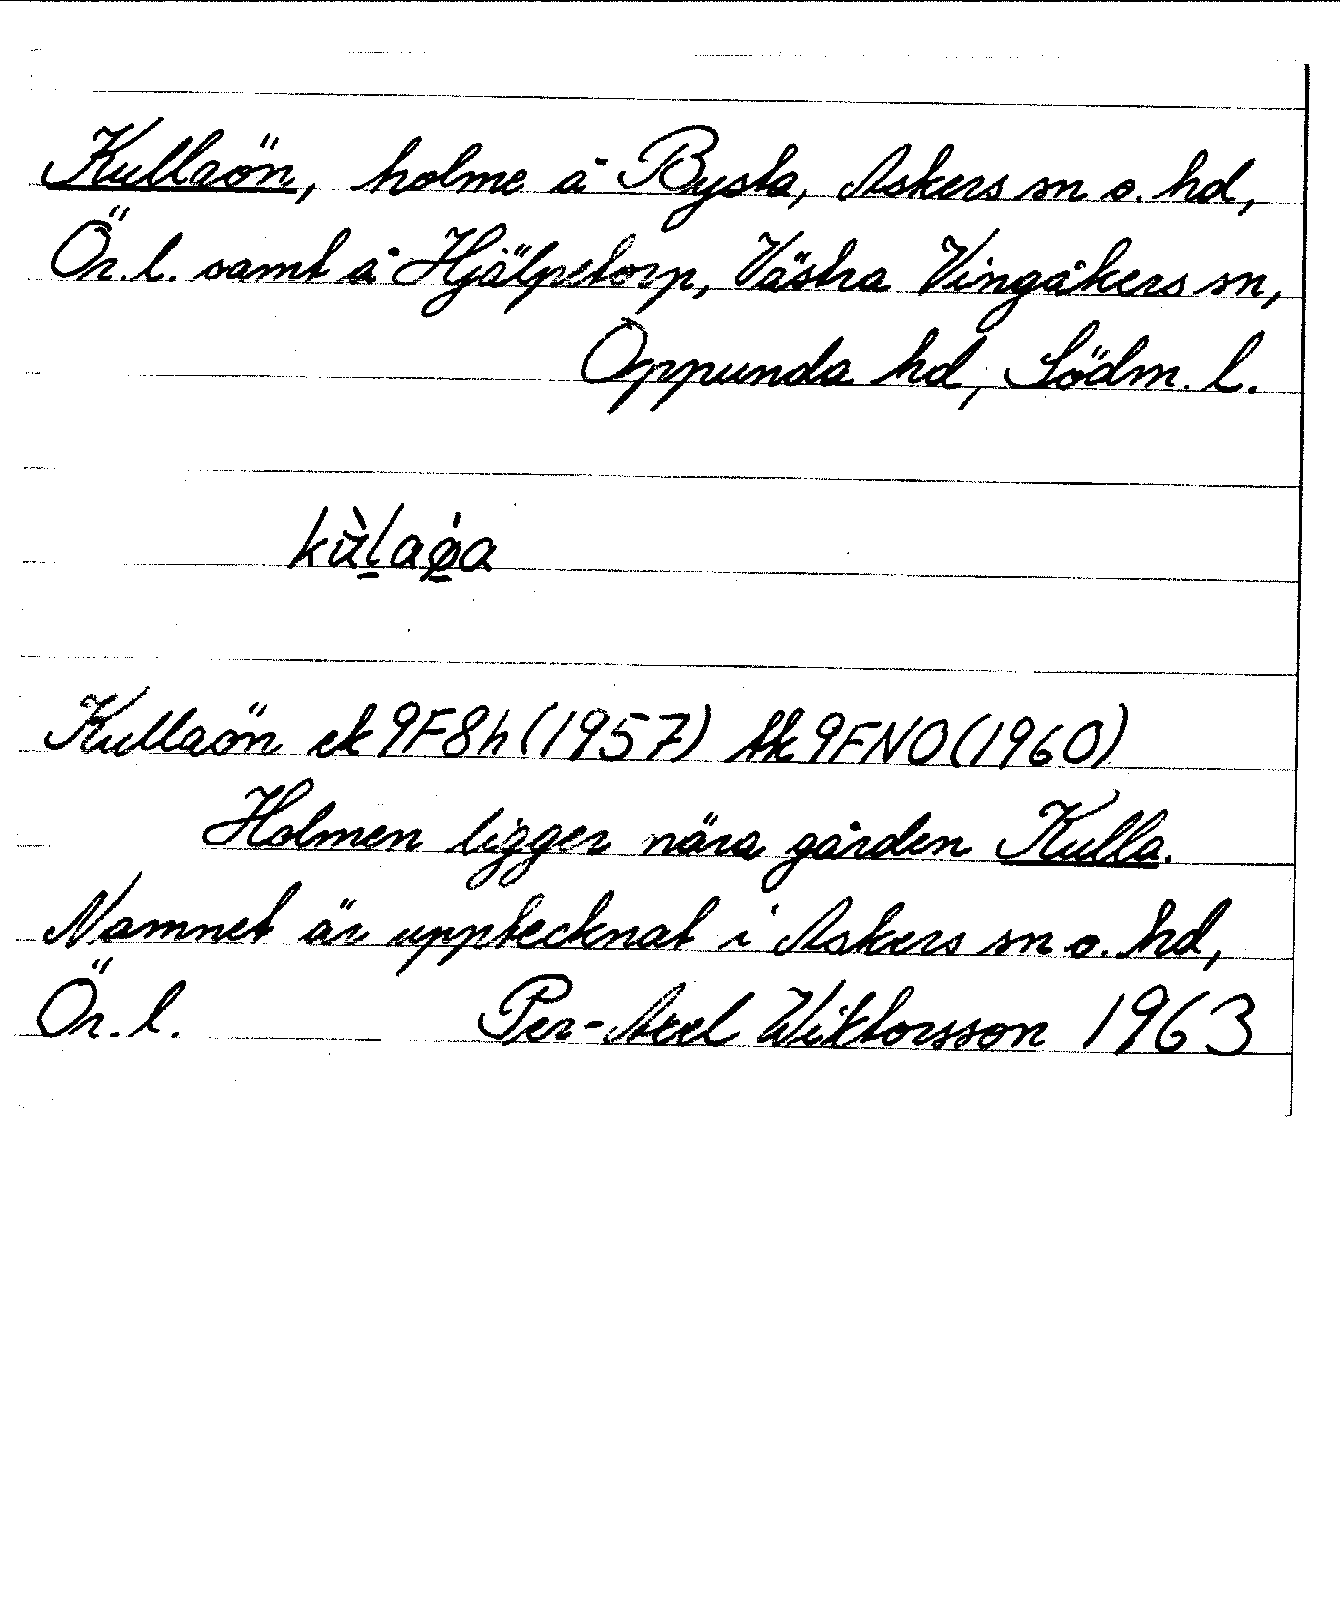 Kullaön, holme å Bysta, Askers sn o. hd,
Ör. l. samt å Hjälpetorp, Västra Vingåkers sn,
Oppunda hd, Södm. l.
kùlaǿa
Kullaön ek 9F8h (1957) tk 9FNO (1960)
Holmen ligger nära gården Kulla.
Namnet är upptecknat i Askers sn o. hd,
Ör. l. Per-Axel Wiktorsson 1963